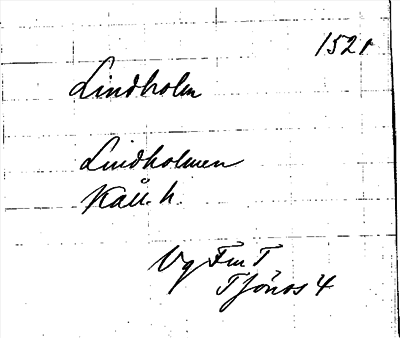 1521
Lindholm
Lindholmen
Kåll. h.
Vg Fm T
Tjörns 4